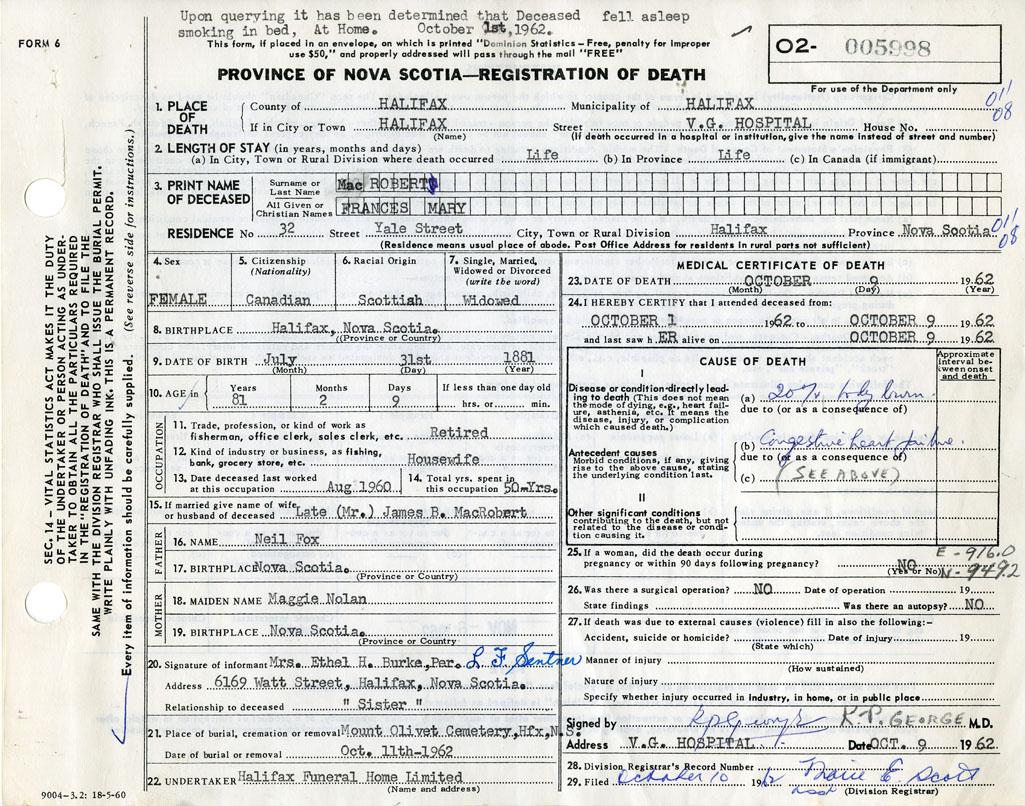 Upon querying it has been determined that Deceased fell asleep
smoking in bed, At Home. October 1st, 1962.
FORM 6
This form, if placed in an envelope, on which is printed "Dominion Statistics – Free, penalty for improper
use $50," and properly addressed will pass through the mail "FREE"
O2- 005998
For use of the Department only
PROVINCE OF NOVA SCOTIA—REGISTRATION OF DEATH
SEC. 14 – VITAL STATISTICS ACT MAKES IT THE DUTY
OF THE UNDERTAKER OR PERSON ACTING AS UNDER-
TAKER TO OBTAIN ALL THE PARTICULARS REQUIRED
IN THE "REGISTRATION OF DEATH" AND TO FILE THE
SAME WITH THE DIVISION REGISTRAR WHO SHALL ISSUE THE BURIAL PERMIT.
WRITE PLAINLY WITH UNFADING INK – THIS IS A PERMANENT RECORD.
Every item of information should be carefully supplied. (See reverse side for instructions.)
1. PLACE OF DEATH
County of HALIFAX Municipality of HALIFAX
If in City or Town HALIFAX Street V.G. HOSPITAL House No.
(Name) (If death occurred in a hospital or institution, give the name instead of street and number)
011
08
2. LENGTH OF STAY (in years, months and days)
(a) In City, Town or Rural Division where death occurred Life (b) In Province Life (c) In Canada (if immigrant)
3. PRINT NAME OF DECEASED
Surname or Last Name Mac ROBERT
All Given or Christian Names FRANCES MARY
RESIDENCE No 32 Street Yale Street City, Town or Rural Division Halifax Province Nova Scotia
(Residence means usual place of abode. Post Office Address for residents in rural parts not sufficient)
011
08
4. Sex FEMALE
5. Citizenship (Nationality) Canadian
6. Racial Origin Scottish
7. Single, Married, Widowed or Divorced (write the word) Widowed
8. BIRTHPLACE Halifax, Nova Scotia.
(Province or Country)
9. DATE OF BIRTH July 31st. 1881
(Month) (Day) (Year)
10. AGE in Years 81 Months 2 Days 9 If less than one day old hrs. or min.
OCCUPATION
11. Trade, profession, or kind of work as
fisherman, office clerk, sales clerk, etc. Retired
12. Kind of industry or business, as fishing,
bank, grocery store, etc. Housewife
13. Date deceased last worked
at this occupation Aug 1960
14. Total yrs. spent in
this occupation 50-Yrs.
15. If married give name of wife
or husband of deceased Late (Mr.) James B. MacRobert
FATHER
16. NAME Neil Fox
17. BIRTHPLACE Nova Scotia.
(Province or Country)
MOTHER
18. MAIDEN NAME Maggie Nolan
19. BIRTHPLACE Nova Scotia.
(Province or Country)
20. Signature of informant Mrs. Ethel H. Burke, Par. L F Sentner
Address 6169 Watt Street, Halifax, Nova Scotia.
Relationship to deceased " Sister "
21. Place of burial, cremation or removal Mount Olivet Cemetery, Hfx, N.S.
Date of burial or removal Oct. 11th-1962
22. UNDERTAKER Halifax Funeral Home Limited
(Name and address)
9004–3.2: 18-5-60
MEDICAL CERTIFICATE OF DEATH
23. DATE OF DEATH OCTOBER 9 1962
(Month) (Day) (Year)
24. I HEREBY CERTIFY that I attended deceased from:
OCTOBER 1 1962 to OCTOBER 9 1962
and last saw h ER alive on OCTOBER 9 1962
CAUSE OF DEATH
Approximate interval between onset and death
I
Disease or condition directly lead-
ing to death (This does not mean
the mode of dying, e.g., heart fail-
ure, asthenia, etc. It means the
disease, injury, or complication
which caused death.)
(a) 20% body burn.
due to (or as a consequence of)
Antecedent causes
Morbid conditions, if any, giving
rise to the above cause, stating
the underlying condition last.
(b) Congestive heart failure.
due to (or as a consequence of)
(c) (SEE ABOVE)
II
Other significant conditions
contributing to the death, but not
related to the disease or condi-
tion causing it.
25. If a woman, did the death occur during
pregnancy or within 90 days following pregnancy? NO
(Yes or No)
E - 916.0
N - 949.2
26. Was there a surgical operation? NO Date of operation 19
State findings Was there an autopsy? NO
27. If death was due to external causes (violence) fill in also the following:–
Accident, suicide or homicide? Date of injury 19
(State which)
Manner of injury
(How sustained)
Nature of injury
Specify whether injury occurred in industry, in home, or in public place
Signed by K.P. GEORGE M.D.
Address V.G. HOSPITAL Date OCT. 9 1962
28. Division Registrar's Record Number
29. Filed October 10 1962 Marie E. Scott
(Division Registrar)